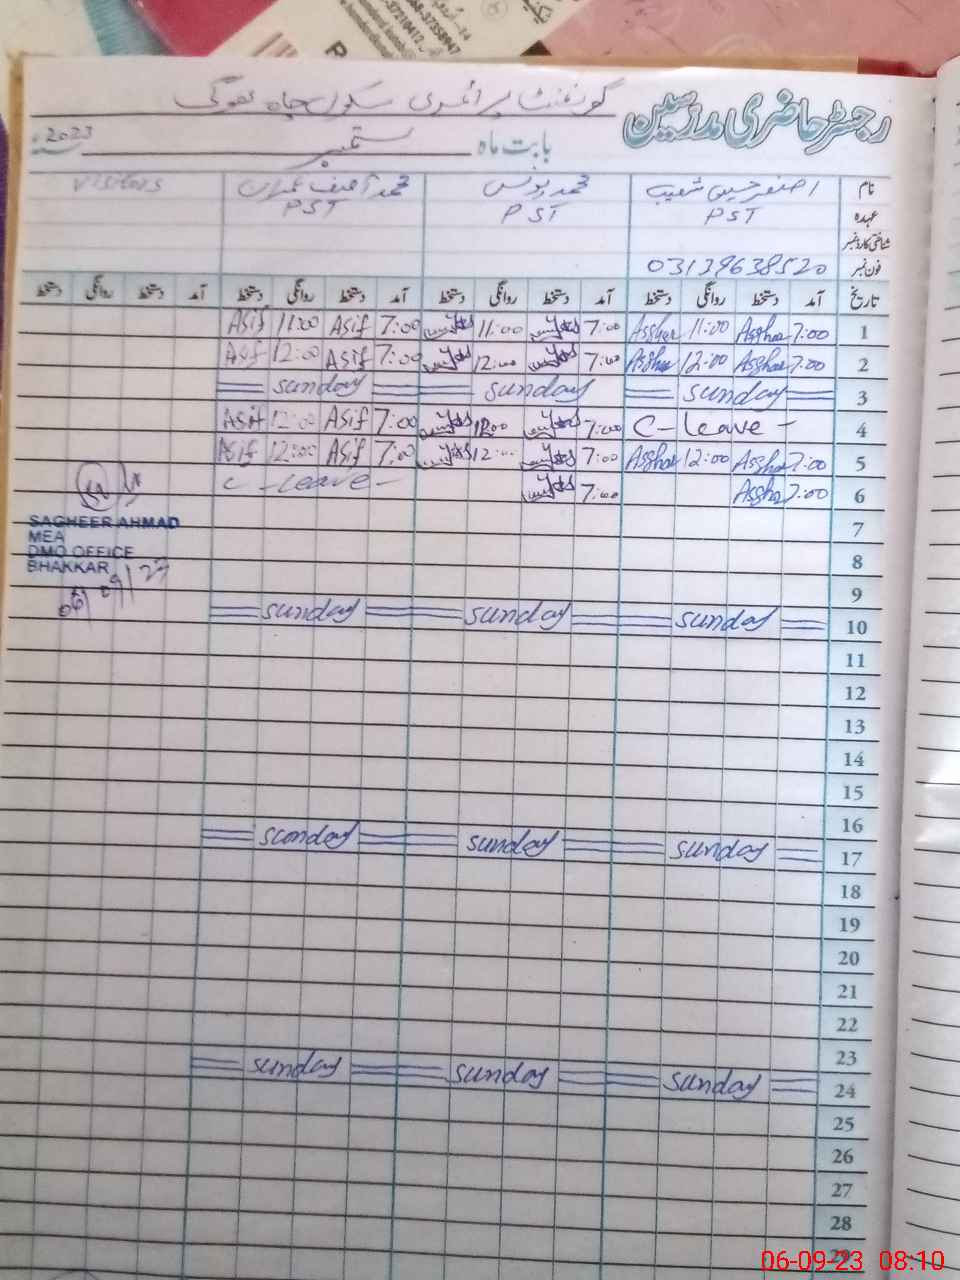 رجسٹر حاضری مدرسین
گورنمنٹ پرائمری سکول چاہ
بابت ماہ ستمبر 2023
نام اصغر حسین شعیب محمد یونس محمد آصف عمران Visitors
عہدہ PST PST PST
شناختی کارڈ نمبر
فون نمبر 03139638520
تاریخ آمد دستخط روانگی دستخط آمد دستخط روانگی دستخط آمد دستخط روانگی دستخط آمد دستخط روانگی دستخط
1 7:00 Asghar 11:00 Asghar 7:00 11:00 7:00 Asif 11:00 Asif
2 7:00 Asghar 12:00 Asghar 7:00 12:00 7:00 Asif 12:00 Asif
3 sunday sunday sunday
4 C- leave - 7:00 12:00 7:00 Asif 12:00 Asif
5 7:00 Asghar 12:00 Asghar 7:00 12:00 7:00 Asif 12:00 Asif
6 7:00 Asghar 7:00 C - leave -
7
SAGHEER AHMAD
MEA
8
DMO OFFICE
BHAKKAR
9
06/09/23
10 sunday sunday sunday
11
12
13
14
15
16
17 sunday sunday sunday
18
19
20
21
22
23
24 sunday sunday sunday
25
26
27
28
29
06-09-23 08:10